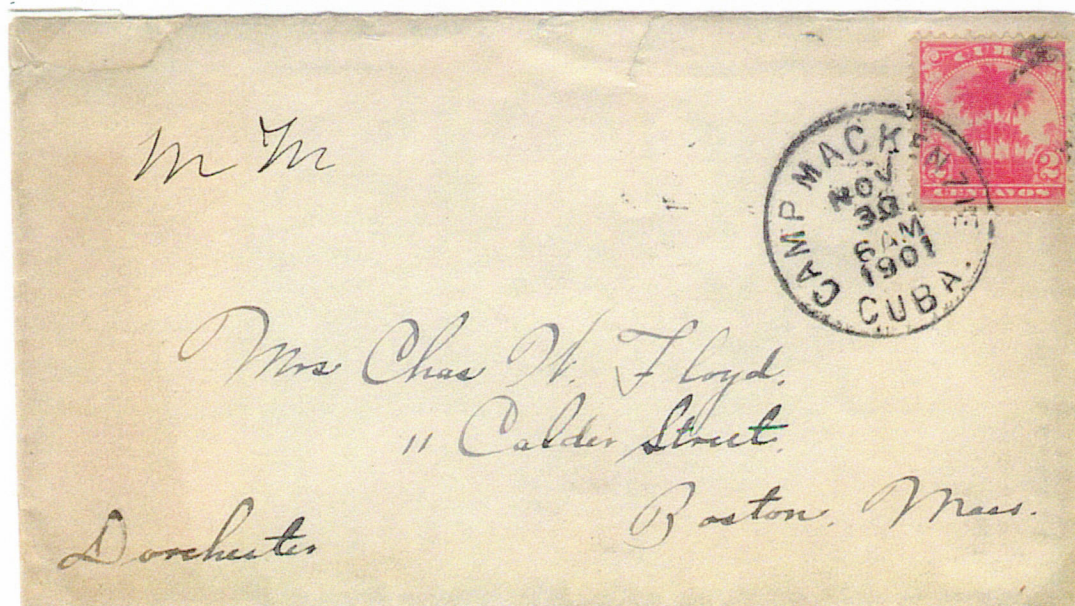 CUBA
2 2
CENTAVOS
CAMP MACKENZIE
NOV
30
6 AM
1901
CUBA.
M M
Mrs Chas W. Floyd.
11 Calder Street.
Boston, Mass.
Dorchester